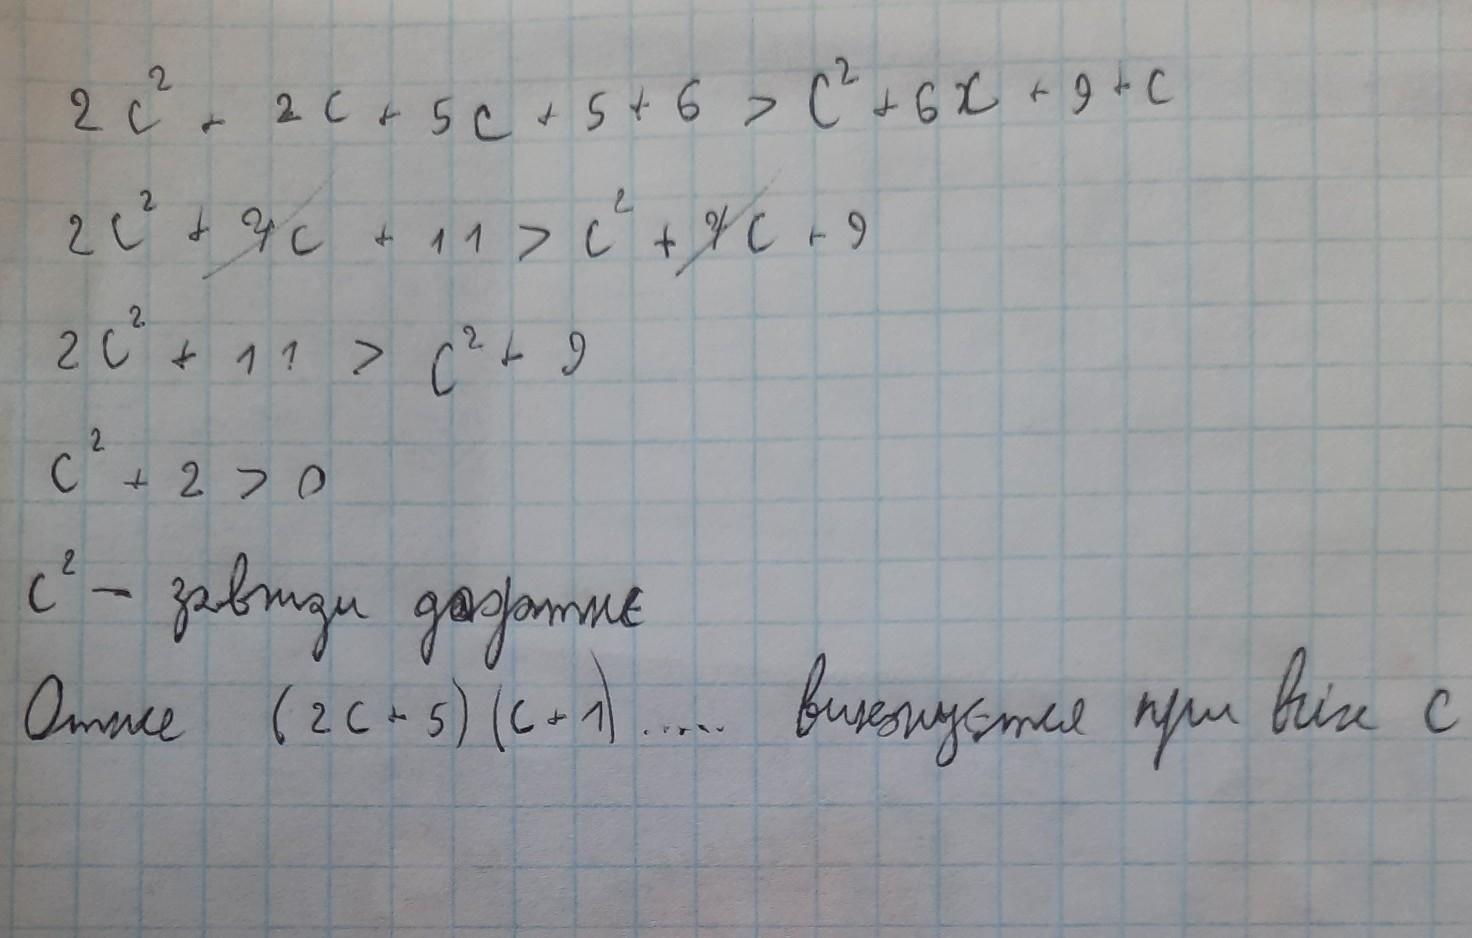 2c² + 2c + 5c + 5 + 6 > c² + 6x + 9 + c
2c² + 7c + 11 > c² + 7c + 9
2c² + 11 > c² + 9
c² + 2 > 0
c² – завжди додатнє
Отже (2c + 5)(c + 1) ..... виконується при всіх c